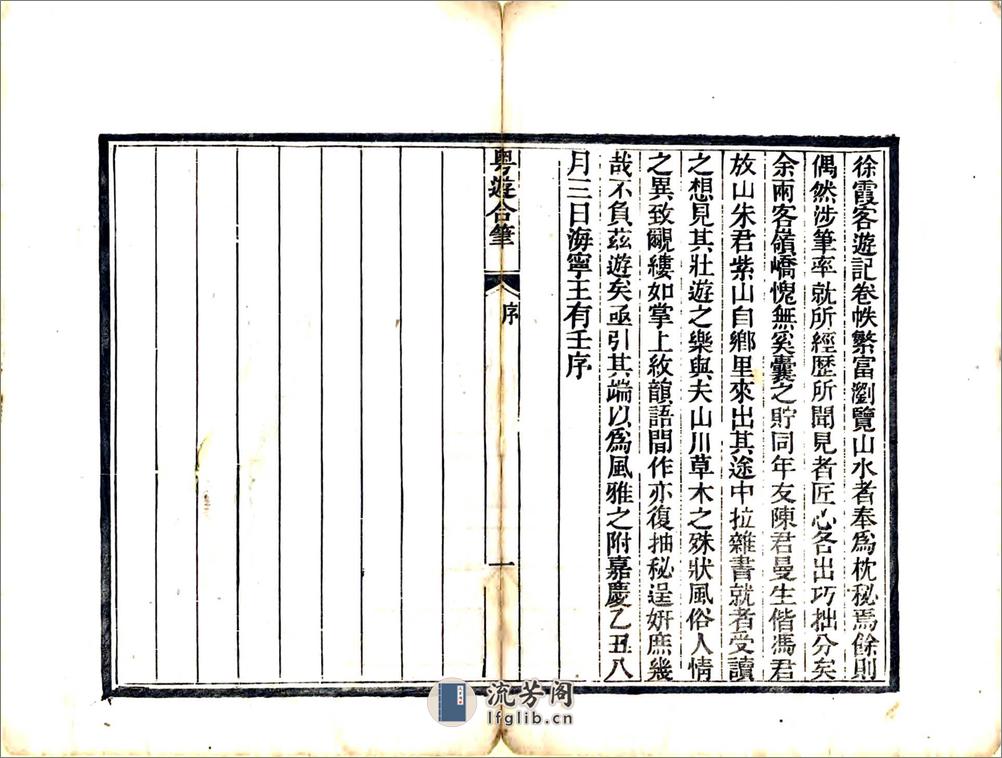 徐霞客遊記卷帙繁富瀏覽山水者奉爲枕秘焉餘則
偶然涉筆率就所經歷所聞見者匠心各出巧拙分矣
余兩客嶺嶠愧無奚囊之貯同年友陳君曼生偕馮君
放山朱君紫山自鄉里來出其途中拉雜書就者受讀
之想見其壯遊之樂與夫山川草木之殊狀風俗人情
之異致覼縷如掌上紋韻語間作亦復抽秘逞妍庶幾
哉不負茲遊矣亟引其端以爲風雅之附嘉慶乙丑八
月三日海寧王有壬序
粵遊合筆
序
一
流芳阁
lfglib.cn